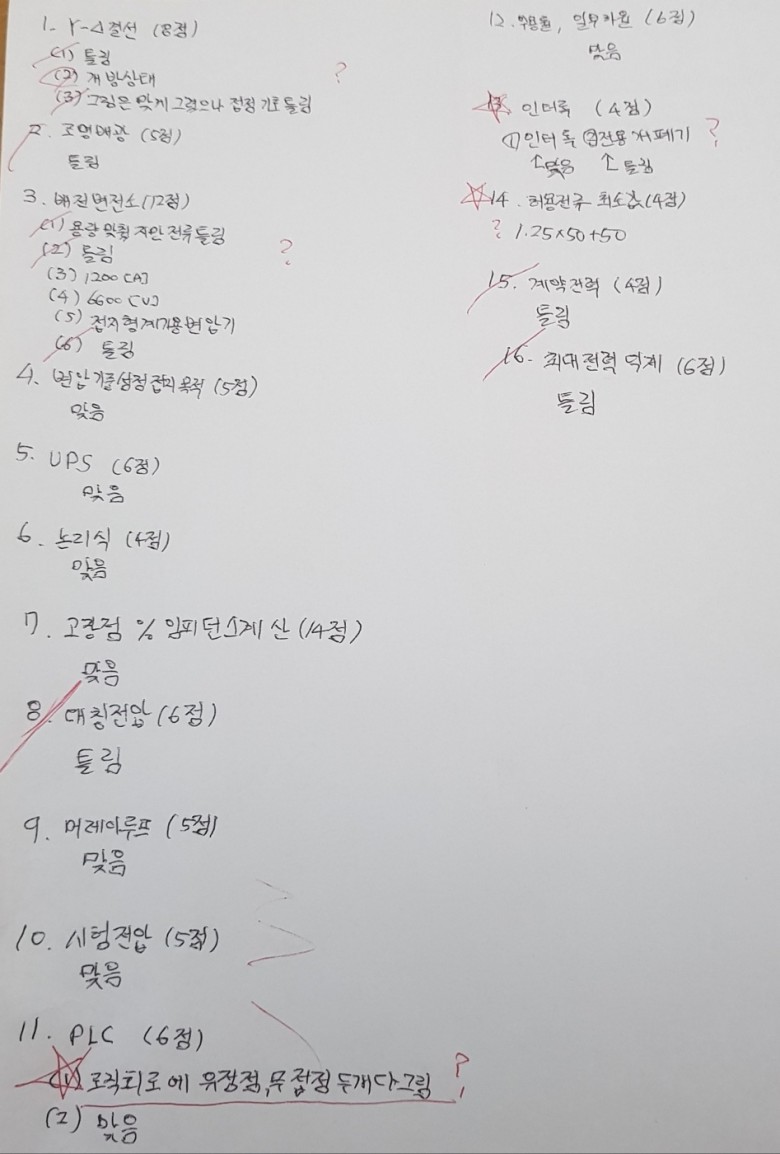 1. Y-Δ결선 (8점)
(1) 틀림
(2) 개방상태
(3) 그림은 맞게 그렸으나 접점 기호 틀림
?
2. 조명배광 (5점)
틀림
3. 배전변전소 (12점)
(1) 용량 맞췄지만 전류틀림
(2) 틀림
?
(3) 1200 [A]
(4) 6600 [V]
(5) 접지형계기용변압기
(6) 틀림
4. 변압기중성점접지목적 (5점)
맞음
5. UPS (6점)
맞음
6. 논리식 (4점)
맞음
7. 고장점 % 임피던스계산 (14점)
맞음
8. 대칭전압 (6점)
틀림
9. 머레이루프 (5점)
맞음
10. 시험전압 (5점)
맞음
11. PLC (6점)
(1) 로직회로에 유접점,무접점 두개다그림 ?
(2) 맞음
12. 수용률, 일부하율 (6점)
맞음
13. 인터록 (4점)
①인터록 ②전용개폐기 ?
↑맞음 ↑틀림
14. 허용전류 최소값(4점)
? 1.25×50+50
15. 계약전력 (4점)
틀림
16. 최대전력 억제 (6점)
틀림